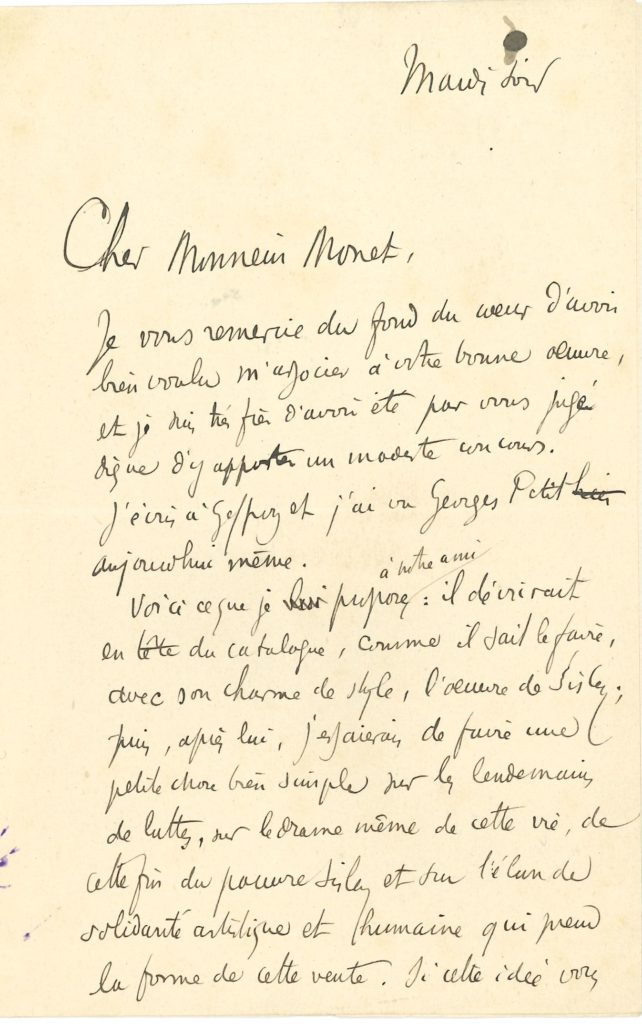 Mardi soir
Cher Monsieur Monet,
Je vous remercie du fond du cœur d'avoir
bien voulu m'associer à votre bonne œuvre,
et je suis très fier d'avoir été par vous jugé
digne d'y apporter un modeste concours.
J'écris à Geffroy et j'ai vu Georges Petit hier
aujourd'hui même.
à notre ami
Voici ce que je lui propose : il décrirait
en tête du catalogue, comme il sait le faire,
avec son charme de style, l'œuvre de Sisley ;
puis, après lui, j'essaierais de faire une
petite chose bien simple sur les lendemains
de luttes, sur le drame même de cette vie, de
cette fin du pauvre Sisley et sur l'élan de
solidarité artistique et humaine qui prend
la forme de cette vente. Si cette idée vous